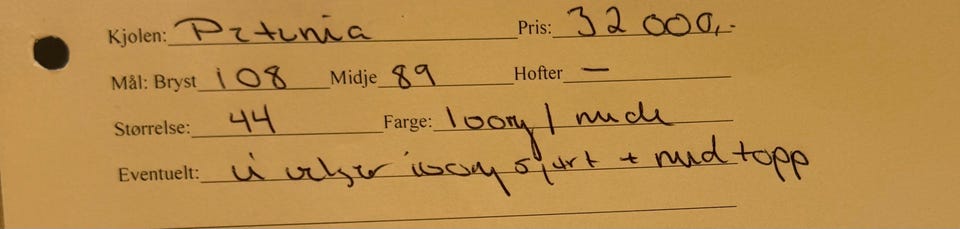 Kjolen: Petunia Pris: 32 000,-
Mål: Bryst 108 Midje 89 Hofter —
Størrelse: 44 Farge: Ivory / nude
Eventuelt: vi velger ivory skjørt + nud topp